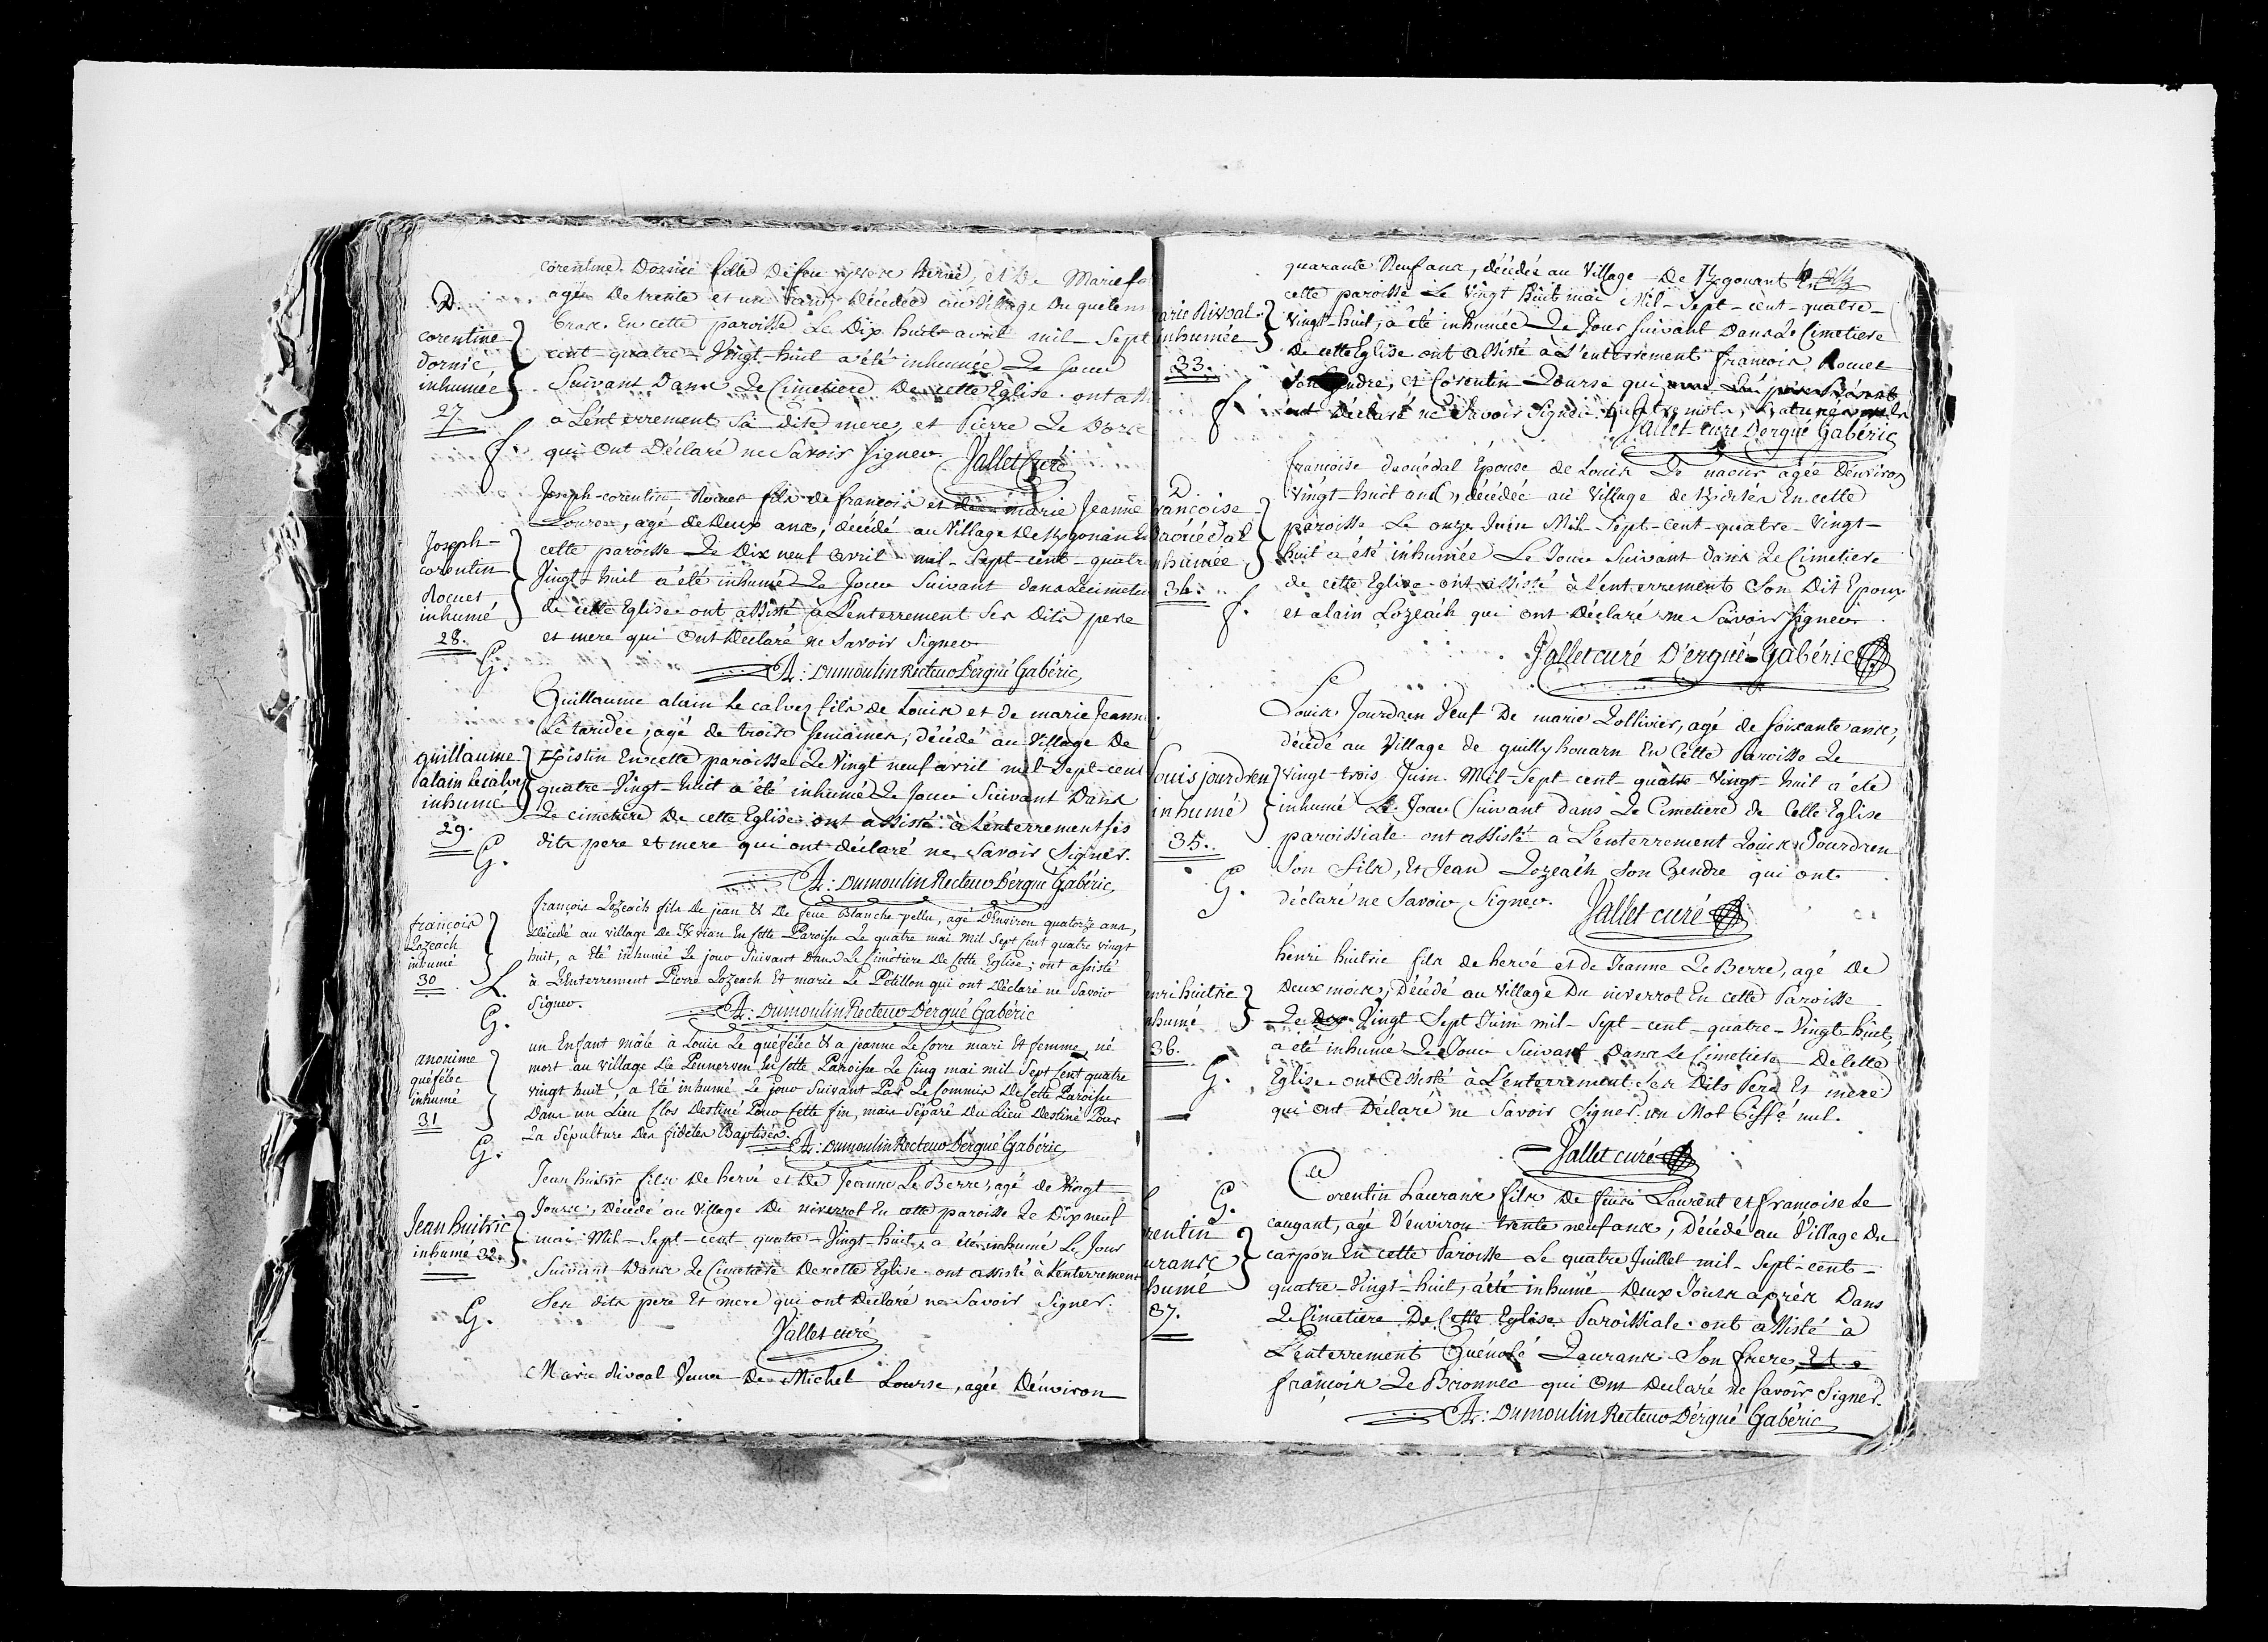 corentine Dornic fille de feu yves hervé, et de Marie
D.
agée de trente et un ans, décédée au Village du quelenn
corentine
Dornic
inhumée
27
bras En cette paroisse Le Dix huit avril mil-Sept
cent-quatre-Vingt-huit a été inhumée Le Jour
Suivant Dans Le Cimetiere De cette Eglise. ont
a L'enterrement Sa dite mere, et Pierre Le
f.
qui Ont Déclaré ne Savoir Signer. Jallet Curé
Joseph-corentin Rocuet fils de françois et marie Jeanne
Lourse, agé de Deux ans, décédé au Village De
Joseph-
corentin
Rocuet
inhumé
28.
cette paroisse Le Dix neuf avril mil-Sept-cent-quatre
Vingt-huit a été inhumé Le Jour Suivant dans Le cimetiere
de cette Eglise. ont assisté à L'enterrement Ses Dits pere
et mere qui Ont Déclaré ne Savoir Signer
G.
A: Dumoulin Recteur D'ergué Gabéric
Guillaume alain Le calvez fils de Louis et de marie Jeanne
Le taridec, agé de trois Semaines, décédé au Village De
guillaume
alain Le calvez
inhumé
29.
K/istin En cette paroisse Le Vingt neuf avril mil Sept-cent
quatre-Vingt-huit a été inhumé Le Jour Suivant Dans
Le cimetiere De cette Eglise. ont assisté à L'enterrement ses
dits pere et mere qui ont déclaré ne Savoir Signer.
G.
A: Dumoulin Recteur D'ergué Gabéric
françois Lozeach fils De jean & De feue Blanche pellu, agé D'Environ quatorze ans,
françois
Lozeach
inhumé
30
L.
Décédé au village De K/vrian En Cette Paroisse Le quatre mai Mil Sept Cent quatre vingt
huit, a Eté inhumé Le jour Suivant Dans Le Cimetiere De Cette Eglise; ont assisté
à L'Enterrement Pierre Lozeach Et marie Le Pétillon qui ont Déclaré ne Savoir
Signer.
A: Dumoulin Recteur D'ergué Gabéric
G.
un Enfant mâle à Louis Le quéfélec & a jeanne Le Corre mari Et femme, né
anonime
quéfélec
inhumé
31
mort au village De Pennerven En Cette Paroisse Le Cinq mai mil Sept Cent quatre
vingt huit, a Eté inhumé Le jour Suivant Par Le Commis De Cette Paroisse
Dans un Lieu Clos Destiné Pour Cette fin, mais Séparé Du Lieu Destiné Pour
La Sépulture Des fideles Baptisés. A: Dumoulin Recteur D'ergué Gabéric
G.
Jean huitric fils De hervé et De Jeanne Le Berre, agé de Vingt
Jean huitric
inhumé 32.
Jours, Décédé au Village De niverrot En cette paroisse Le Dix neuf
mai Mil-Sept-cent-quatre-Vingt-huit, a été inhumé Le Jour
Suivant Dans Le Cimetiere De cette Eglise. ont assisté à L'enterrement
Ses dits pere Et mere qui ont Déclaré ne Savoir Signer.
G.
Jallet curé
Marie Rivoal Veuve De Michel Lourse, agée D'environ
quarante Neuf ans, décédée au Village De En
arie Rivoal
inhumée
33.
cette paroisse Le Vingt huit mai Mil-Sept-cent-quatre-
Vingt-huit, a été inhumée Le Jour Suivant Dans Le Cimetiere
De cette Eglise. ont assisté à L'enterrement françois Rocuet
Son Gendre, et Corentin Lourse qui
f.
ont Déclaré ne Savoir Signer
Jallet curé D'ergué Gabéric
françoise Daouédal Epouse de Louis Le naour agée D'environ
D
rancoise
Daouédal
nhumée
34.
Vingt-huit ans, décédée au Village de En cette
paroisse Le onze Juin Mil-Sept-cent-quatre-Vingt-
huit a été inhumée Le Jour Suivant dans Le Cimetiere
de cette Eglise. ont assisté à L'enterrement Son Dit Epoux
f.
et alain Lozeach qui ont Déclaré ne Savoir Signer.
Jallet curé D'ergué-Gabéric
Louis Jourdren Veuf De marie Lollivier, agé de Soixante ans,
décédé au Village de quillyhouarn En Cette Paroisse Le
Louis jourdren
inhumé
35.
Vingt-trois Juin Mil-Sept cent quatre-Vingt-huit a été
inhumé Le Jour Suivant dans Le Cimetiere de Cette Eglise
paroissiale. ont assisté a L'enterrement Louis Jourdren
Son fils, Et Jean Lozeach Son Gendre qui ont
G.
déclaré ne Savoir Signer. Jallet curé
henri huitric fils de hervé et de Jeanne Le Berre, agé De
nri huitric
nhumé
36.
Deux mois, Décédé au Village Du niverrot En cette Paroisse
Le Vingt Sept Juin mil-Sept-cent-quatre-Vingt-huit,
a été inhumé Le Jour Suivant Dans Le Cimetiere De Cette
G.
Eglise. ont Assisté à L'enterrement Ses Dits Pere Et mere
qui Ont Déclaré ne Savoir Signer. un Mot Biffé nul.
Jallet curé
G.
Corentin Laurans fils De feu Laurent et françoise Le
rentin
urans
humé
37.
caugant, agé D'environ trente neuf ans, Décédé au Village Du
carpon En cette Paroisse Le quatre Juillet mil-Sept-cent-
quatre-Vingt-huit, a été inhumé Deux Jours après Dans
Le Cimetiere De Cette Eglise Paroissiale. ont assisté à
L'enterrement Guénolé Laurans Son frere, Et
françois Le Bronnec qui Ont Declaré ne Savoir Signer.
A: Dumoulin Recteur D'ergué Gabéric